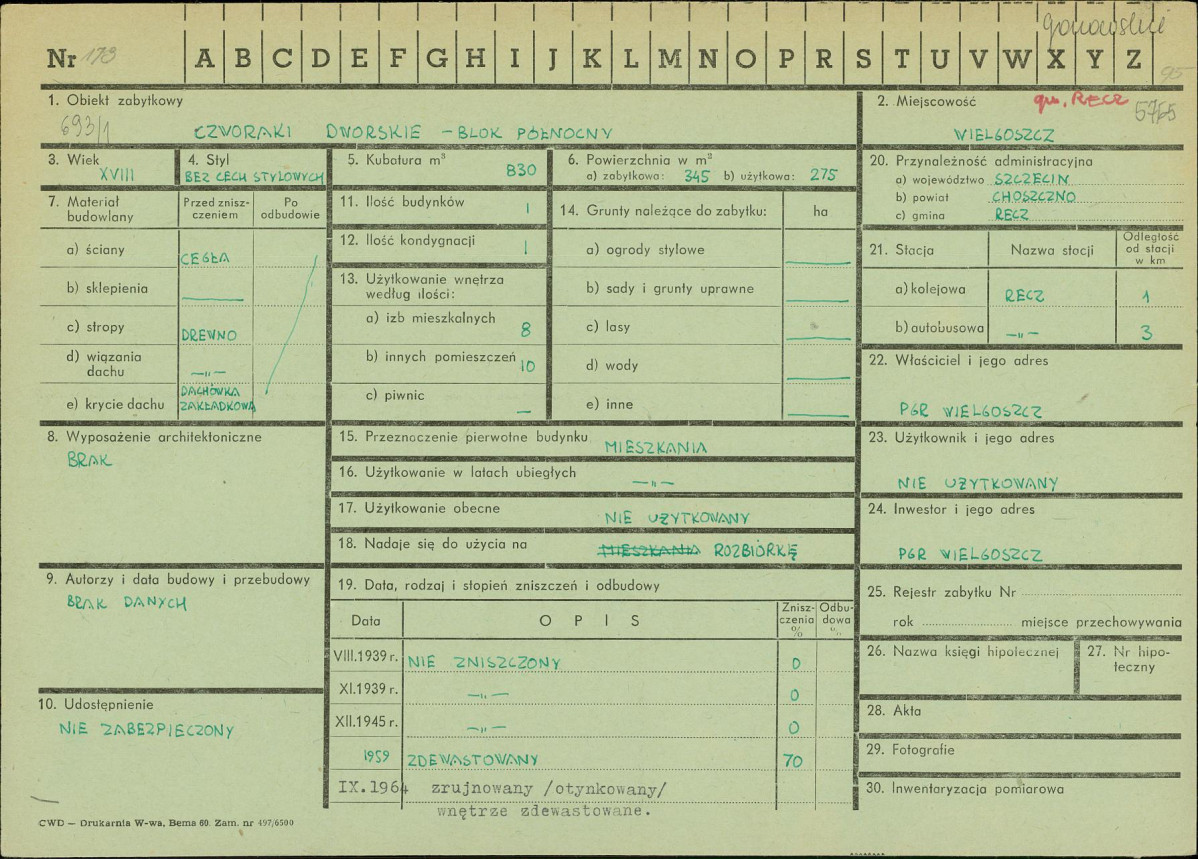 Nr 173 A B C D E F G H I J K L M N O P R S T U V W X Y Z
95
1. Obiekt zabytkowy
693/1
CZWORAKI DWORSKIE – BLOK PÓŁNOCNY
2. Miejscowość gm. RECZ 5765
WIELGOSZCZ
3. Wiek
XVIII
4. Styl
BEZ CECH STYLOWYCH
5. Kubatura m³
830
6. Powierzchnia w m²
a) zabytkowa: 345 b) użytkowa: 275
20. Przynależność administracyjna
a) województwo SZCZECIN
b) powiat CHOSZCZNO
c) gmina RECZ
7. Materiał budowlany
Przed znisz-
czeniem
Po
odbudowie
a) ściany CEGŁA
b) sklepienia —
c) stropy DREWNO
d) wiązania
dachu —„—
e) krycie dachu DACHÓWKA
ZAKŁADKOWA
11. Ilość budynków 1
12. Ilość kondygnacji 1
13. Użytkowanie wnętrza
według ilości:
a) izb mieszkalnych 8
b) innych pomieszczeń 10
c) piwnic —
14. Grunty należące do zabytku: ha
a) ogrody stylowe —
b) sady i grunty uprawne —
c) lasy —
d) wody —
e) inne —
21. Stacja Nazwa stacji Odległość
od stacji
w km
a) kolejowa RECZ 1
b) autobusowa —„— 3
22. Właściciel i jego adres
PGR WIELGOSZCZ
8. Wyposażenie architektoniczne
BRAK
15. Przeznaczenie pierwotne budynku MIESZKANIA
16. Użytkowanie w latach ubiegłych —„—
17. Użytkowanie obecne NIE UŻYTKOWANY
18. Nadaje się do użycia na MIESZKANIA ROZBIÓRKĘ
23. Użytkownik i jego adres
NIE UŻYTKOWANY
24. Inwestor i jego adres
PGR WIELGOSZCZ
9. Autorzy i data budowy i przebudowy
BRAK DANYCH
19. Data, rodzaj i stopień zniszczeń i odbudowy
Data O P I S Znisz-
czenia
% Odbu-
dowa
%
VIII.1939 r. NIE ZNISZCZONY 0
XI.1939 r. —„— 0
XII.1945 r. —„— 0
1959 ZDEWASTOWANY 70
IX.1964 zrujnowany /otynkowany/
wnętrze zdewastowane.
25. Rejestr zabytku Nr
rok miejsce przechowywania
26. Nazwa księgi hipotecznej
27. Nr hipo-
teczny
10. Udostępnienie
NIE ZABEZPIECZONY
28. Akta
29. Fotografie
30. Inwentaryzacja pomiarowa
CWD — Drukarnia W-wa, Bema 60. Zam. nr 497/6500